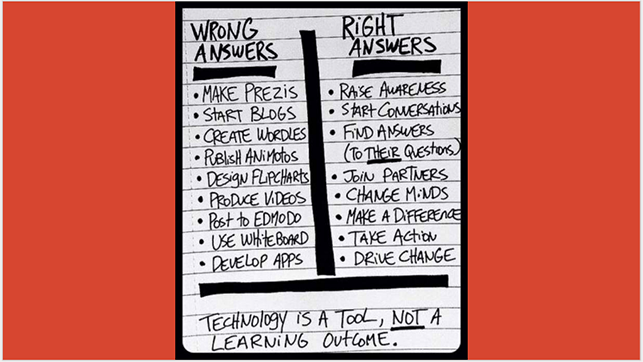 WRONG ANSWERS
• MAKE PREZIS
• START BLOGS
• CREATE WORDLES
• PUBLISH ANIMOTOS
• DESIGN FLIPCHARTS
• PRODUCE VIDEOS
• POST TO EDMODO
• USE WHITEBOARD
• DEVELOP APPS
RIGHT ANSWERS
• RAISE AWARENESS
• START CONVERSATIONS
• FIND ANSWERS
(TO THEIR QUESTIONS)
• JOIN PARTNERS
• CHANGE MINDS
• MAKE A DIFFERENCE
• TAKE ACTION
• DRIVE CHANGE
TECHNOLOGY IS A TOOL, NOT A
LEARNING OUTCOME.